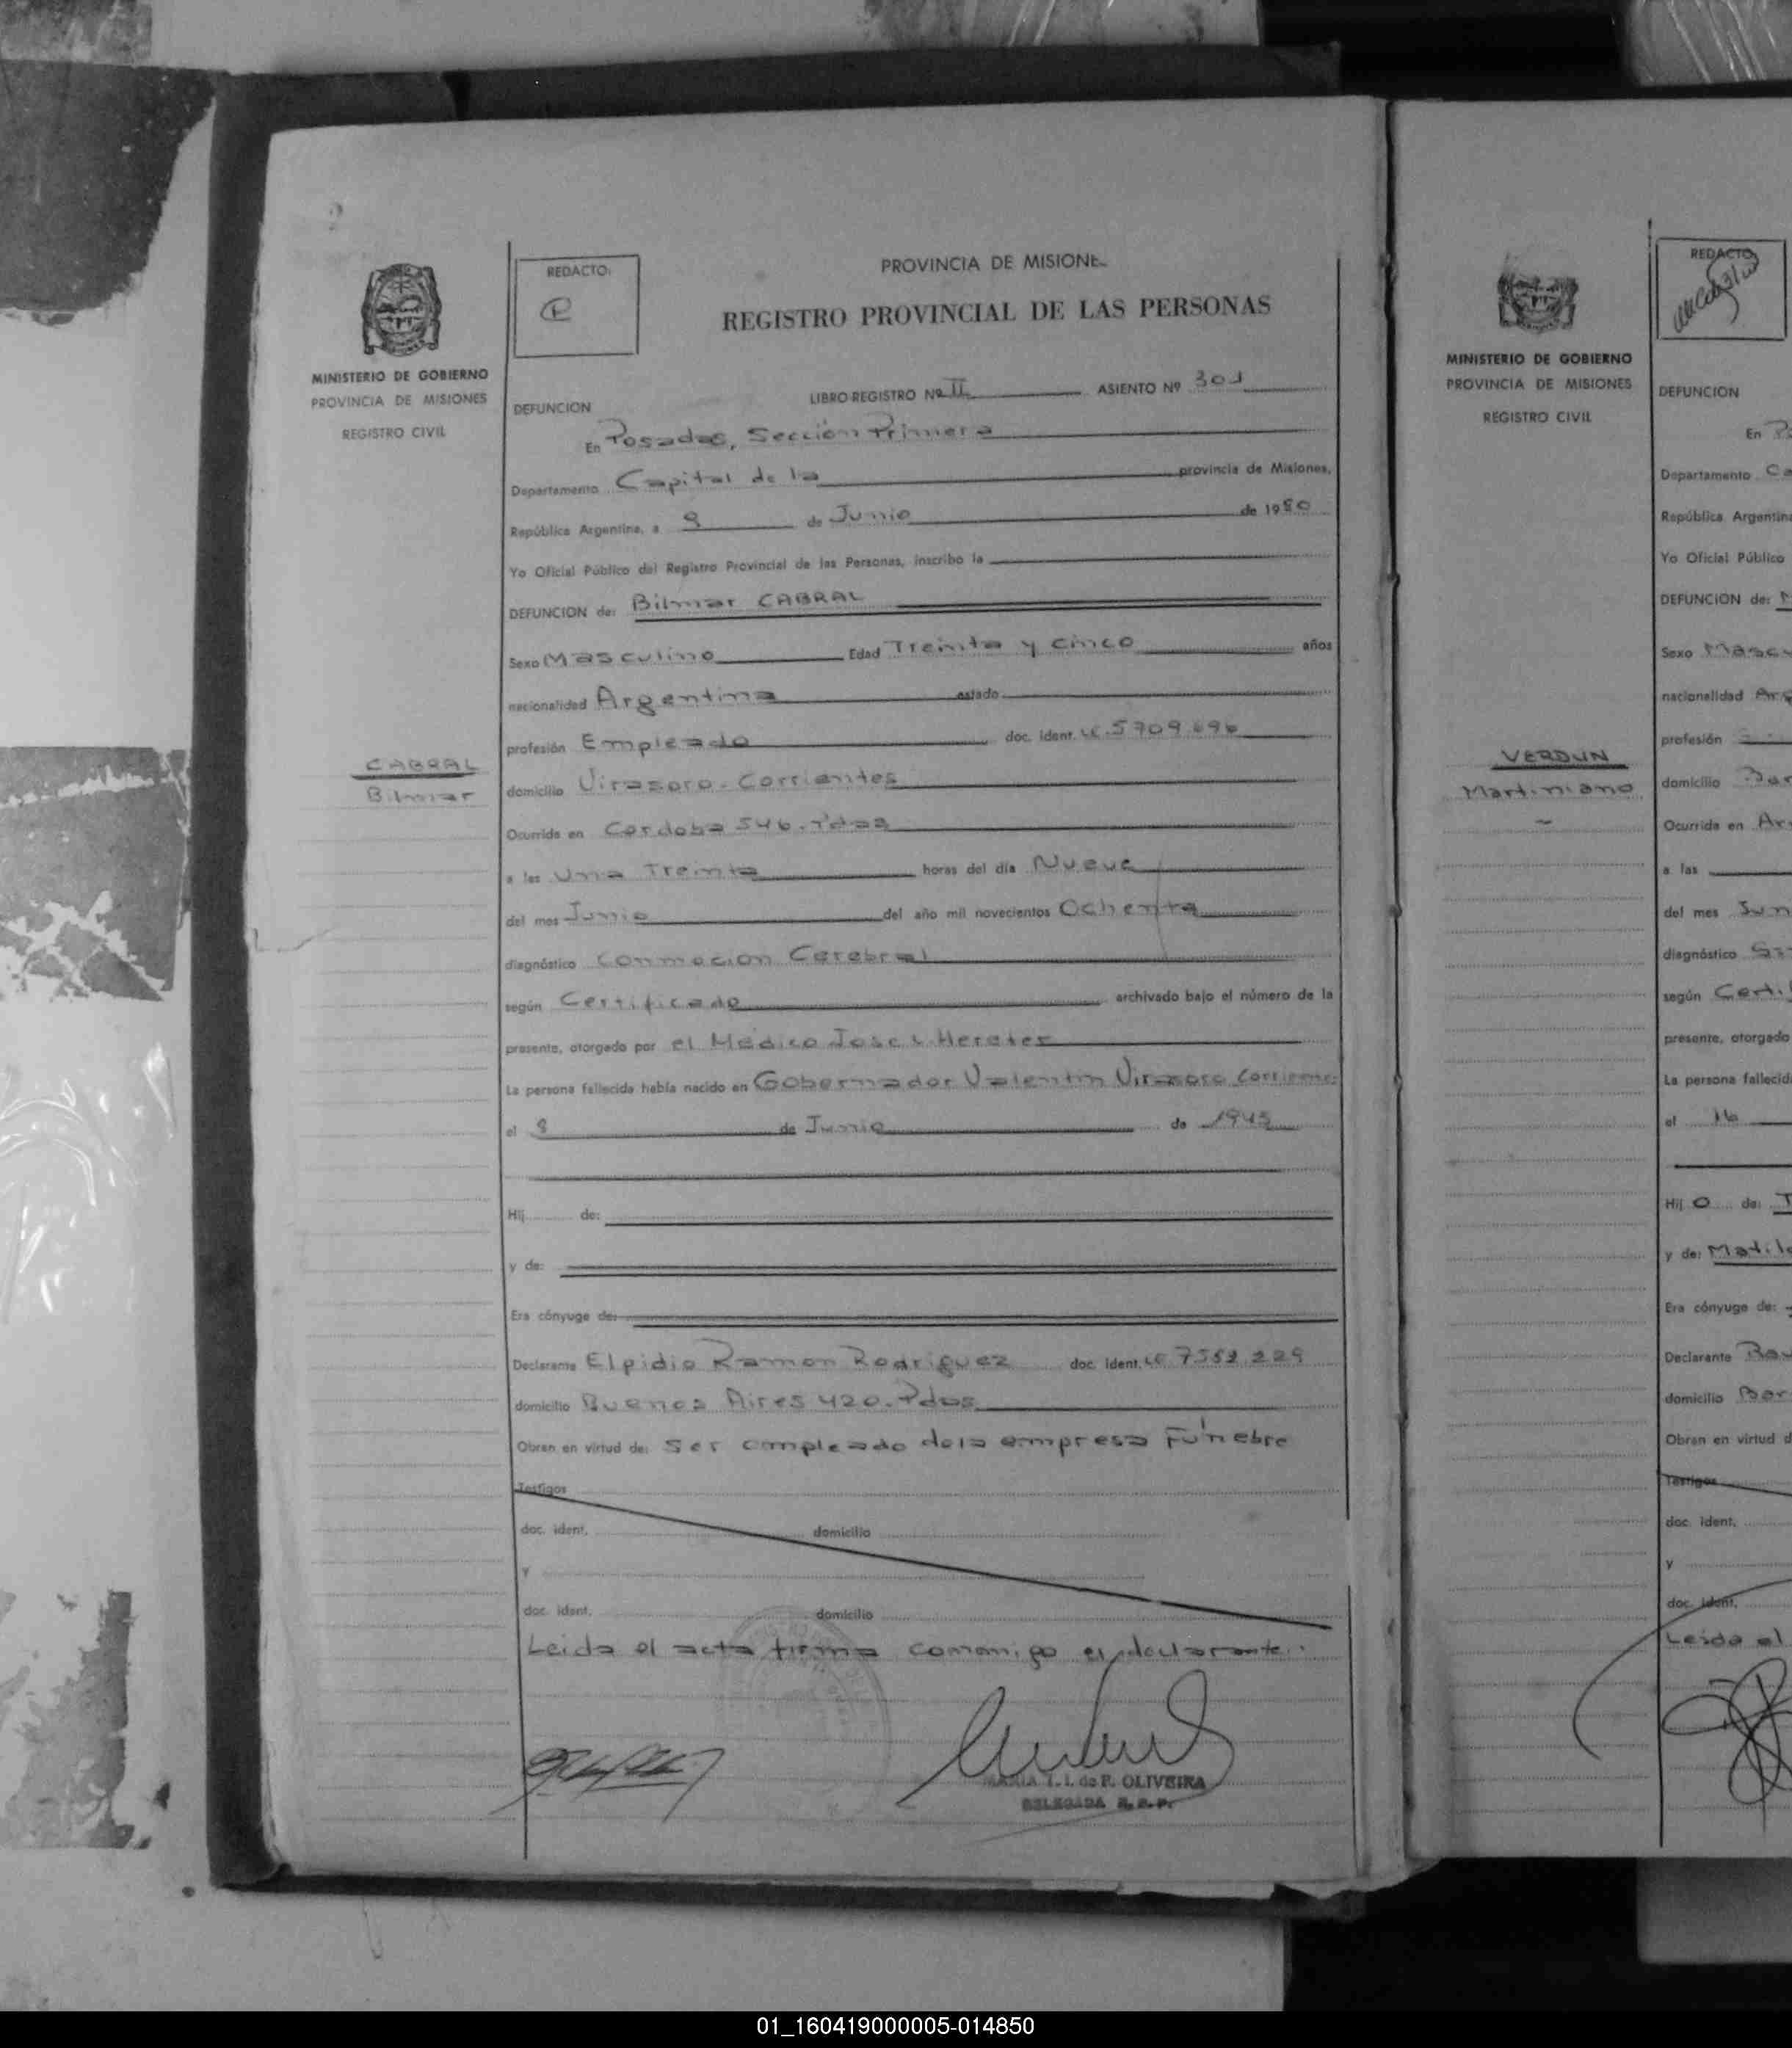 MINISTERIO DE GOBIERNO
PROVINCIA DE MISIONES
REGISTRO CIVIL
CABRAL
Bilmar
REDACTO:
PROVINCIA DE MISIONE
REGISTRO PROVINCIAL DE LAS PERSONAS
LIBRO-REGISTRO Nº II ASIENTO Nº 301
DEFUNCION
En Posadas, Sección Primera
Departamento Capital de la provincia de Misiones,
República Argentina, a 9 de Junio de 1980
Yo Oficial Público del Registro Provincial de las Personas, inscribo la
DEFUNCION de: Bilmar CABRAL
Sexo Masculino Edad Treinta y cinco años
nacionalidad Argentina estado
profesión Empleado doc. ident. LE. 5709.696
domicilio Virasoro - Corrientes
Ocurrida en Cordoba 546. Pdas
a las Una Treinta horas del día Nueve
del mes Junio del año mil novecientos Ochenta
diagnóstico Conmocion Cerebral
según Certificado archivado bajo el número de la
presente, otorgado por el Médico Jose L.
La persona fallecida había nacido en Gobernador Valentin Virasoro Corrientes
el 8 de Junio de 1945
Hij de:
y de:
Era cónyuge de:
Declarante Elpidio Ramon Rodriguez doc. ident. LE 229
domicilio Buenos Aires 420. Pdas
Obran en virtud de: ser empleado de la empresa Fúnebre
Testigos
doc. ident. domicilio
y
doc. ident. domicilio
Leida el acta firma conmigo el declarante.
MARIA T. I. de P. OLIVEIRA
DELEGADA R. P. P.
MINISTERIO DE GOBIERNO
PROVINCIA DE MISIONES
REGISTRO CIVIL
VERDUN
Martiniano
REDACTO
DEFUNCION
En
Departamento Ca
República Argentina
Yo Oficial Público
DEFUNCION de: M
Sexo Mascu
nacionalidad Arg
profesión
domicilio Bar
Ocurrida en Ar
a las
del mes Jun
diagnóstico
según Certi
presente, otorgado
La persona fallecid
el 16
Hij o de: T
y de: Matil
Era cónyuge de:
Declarante Rau
domicilio Bar
Obran en virtud d
Testigos
doc. ident.
y
doc. ident.
Leida el
01_160419000005-014850